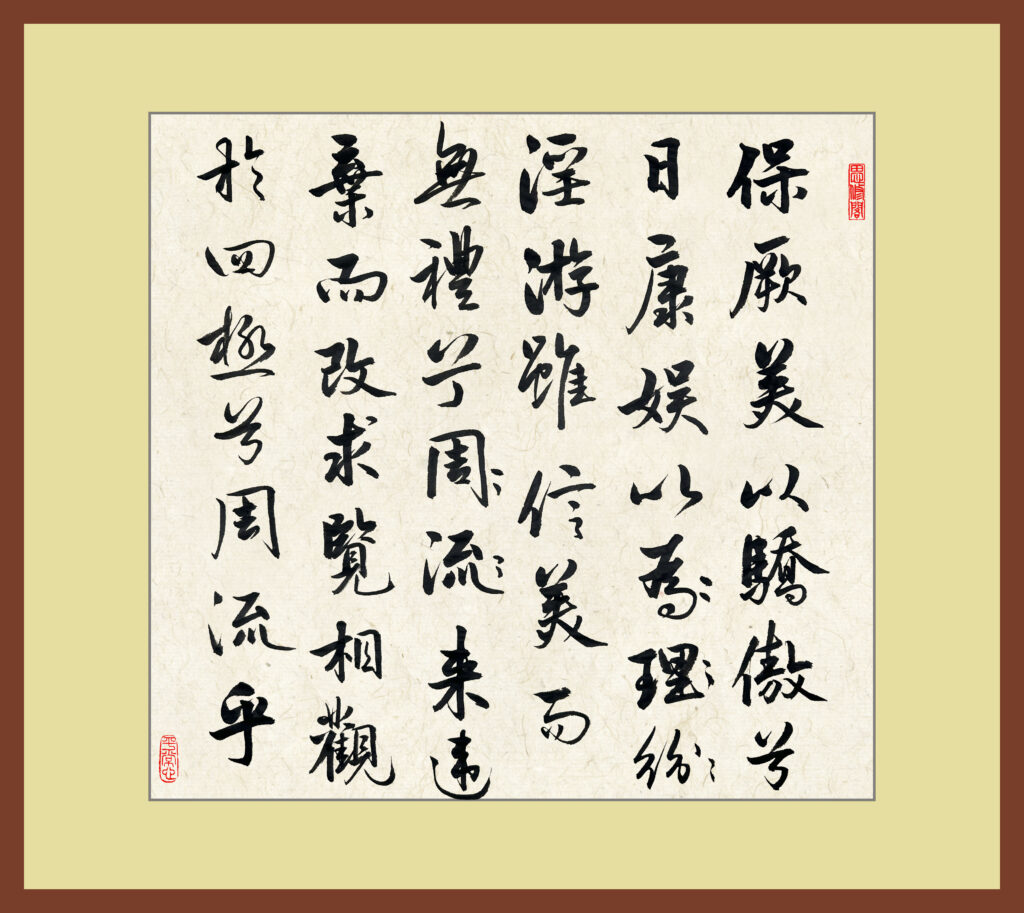 保厥美以驕傲兮
日康娛以為理紛
淫游雖信美而
無禮兮周流来違
棄而改求覽相觀
於四極兮周流乎